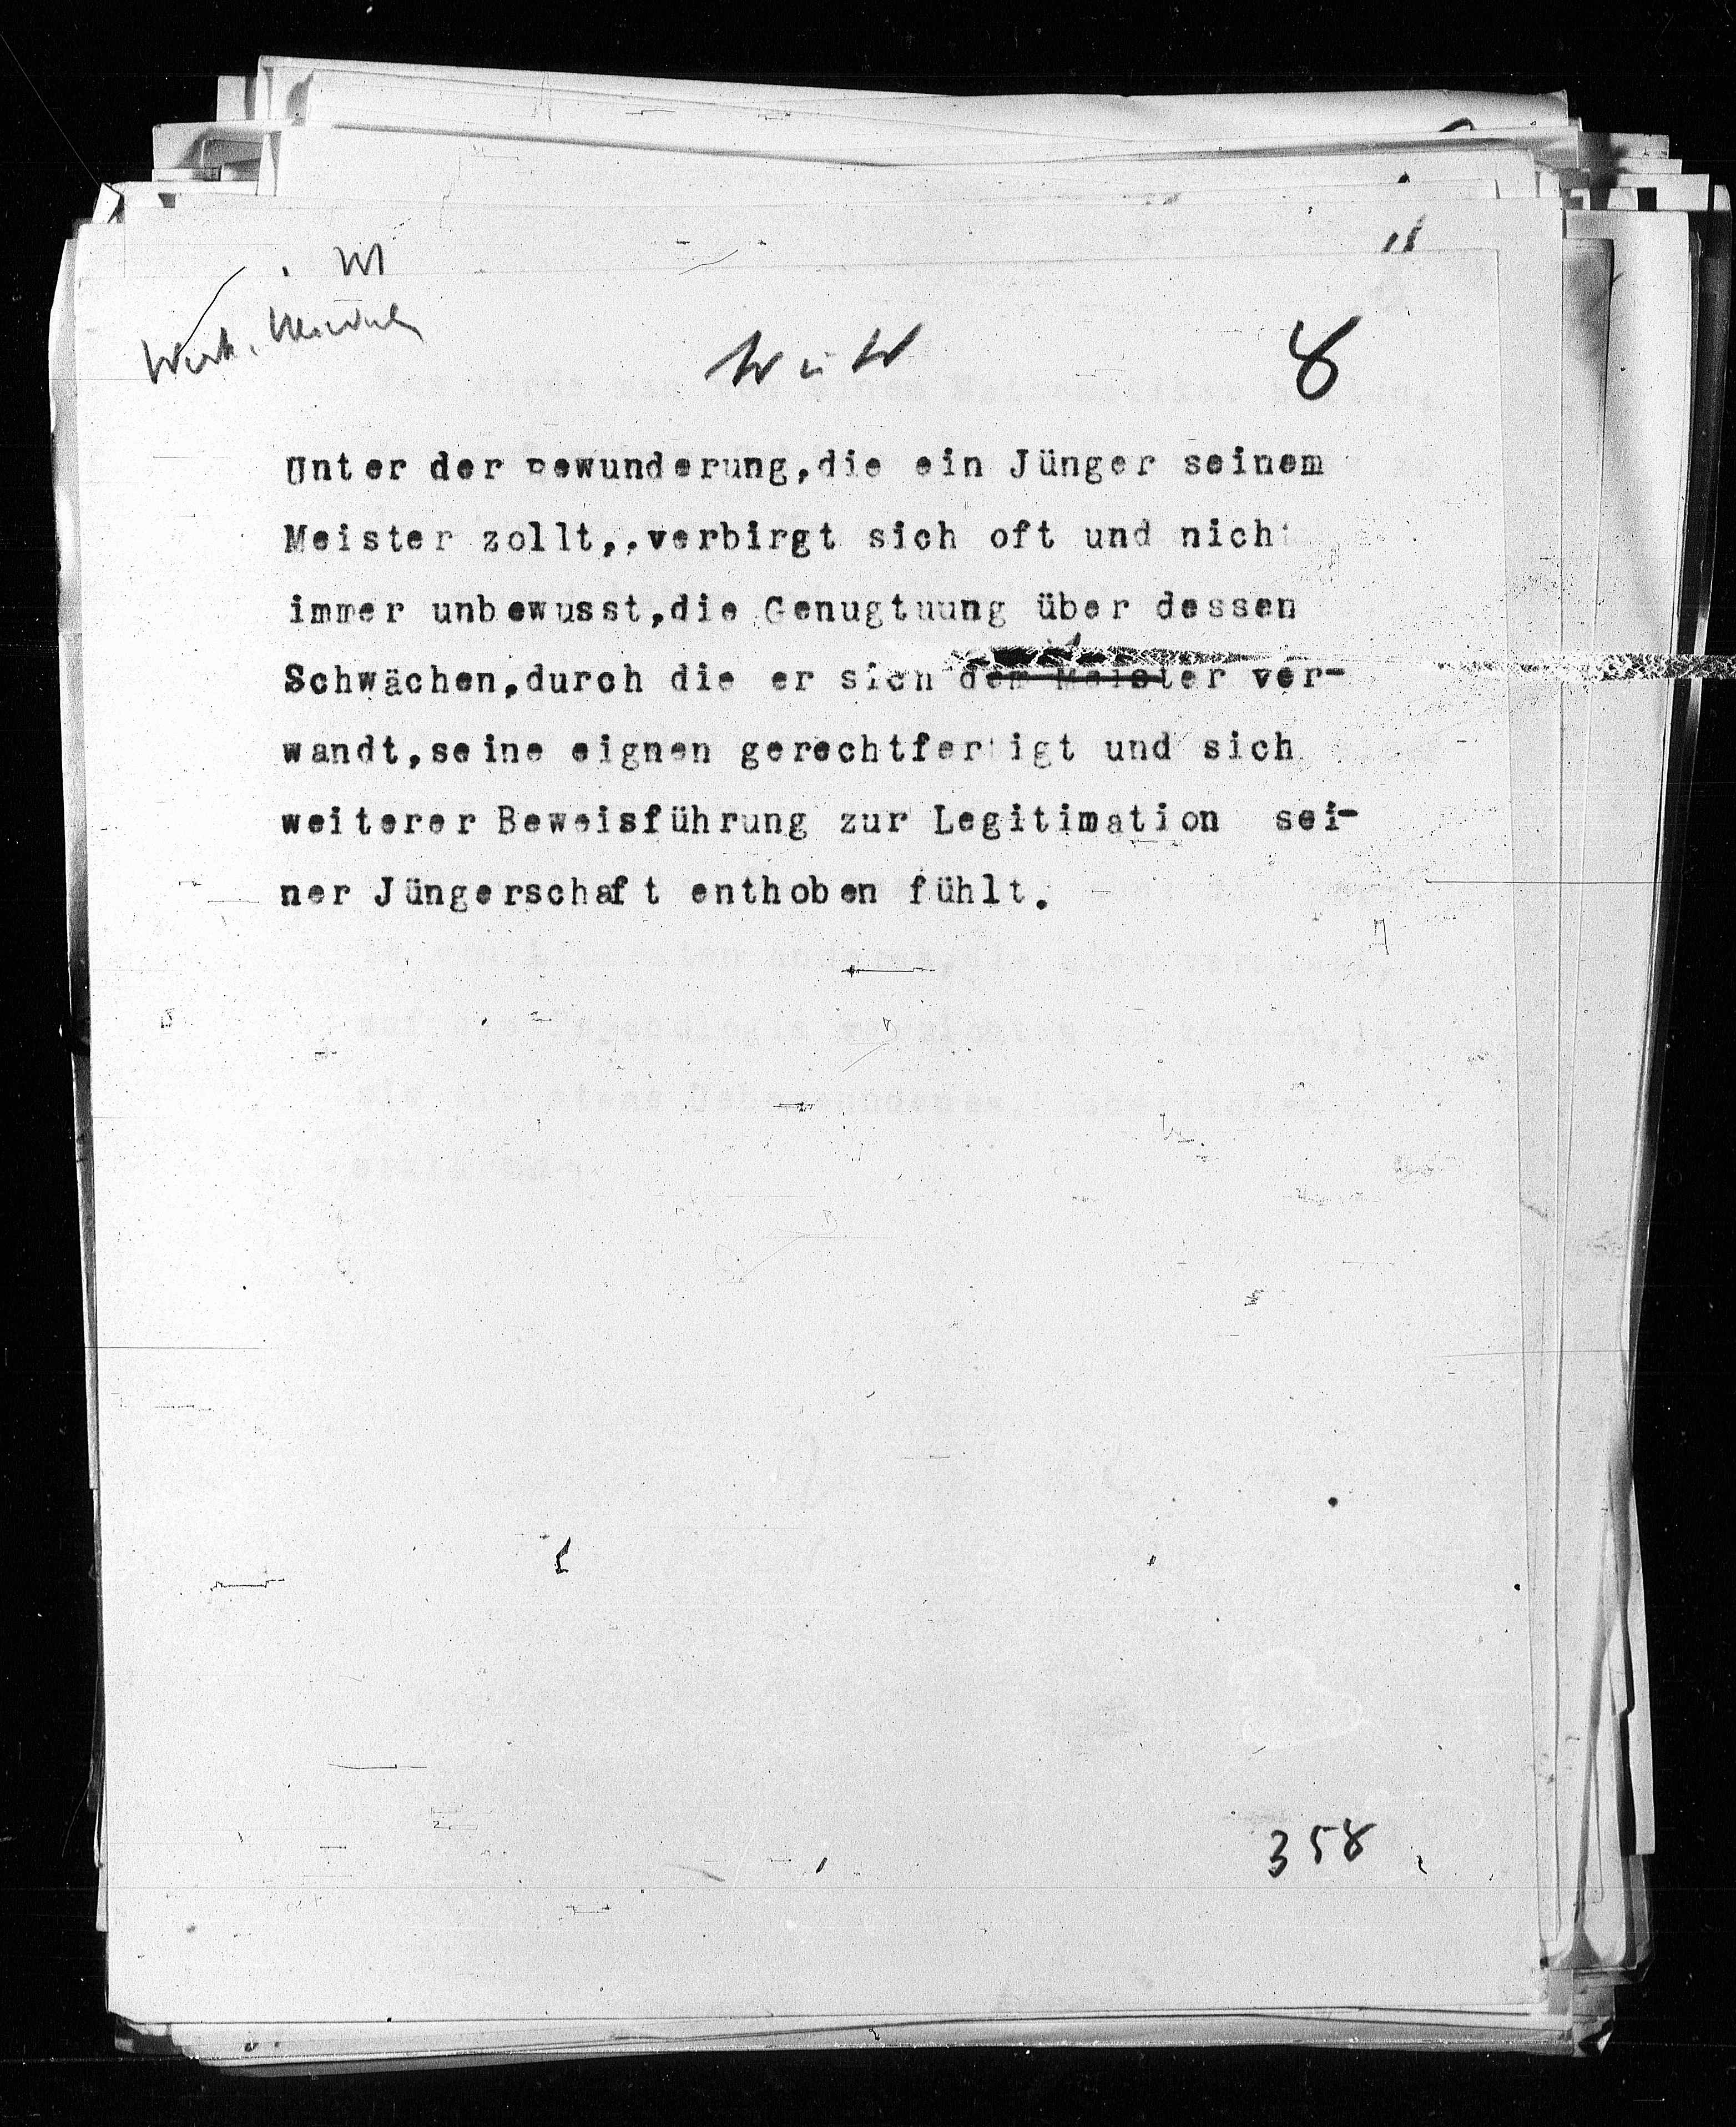 W u W
8
Unter der Bewunderung,die ein Jünger seinem
Meister zollt,,verbirgt sich oft und nicht
immer unbewusst,die Genugtuung über dessen
Schwächen,durch die er sich dem Meister ver-
wandt,seine eignen gerechtfertigt und sich
weiterer Beweisführung zur Legitimation sei-
ner Jüngerschaft enthoben fühlt.
358